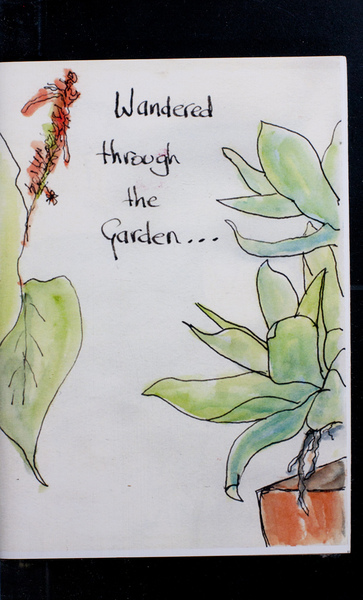 Wandered
through
the
Garden...